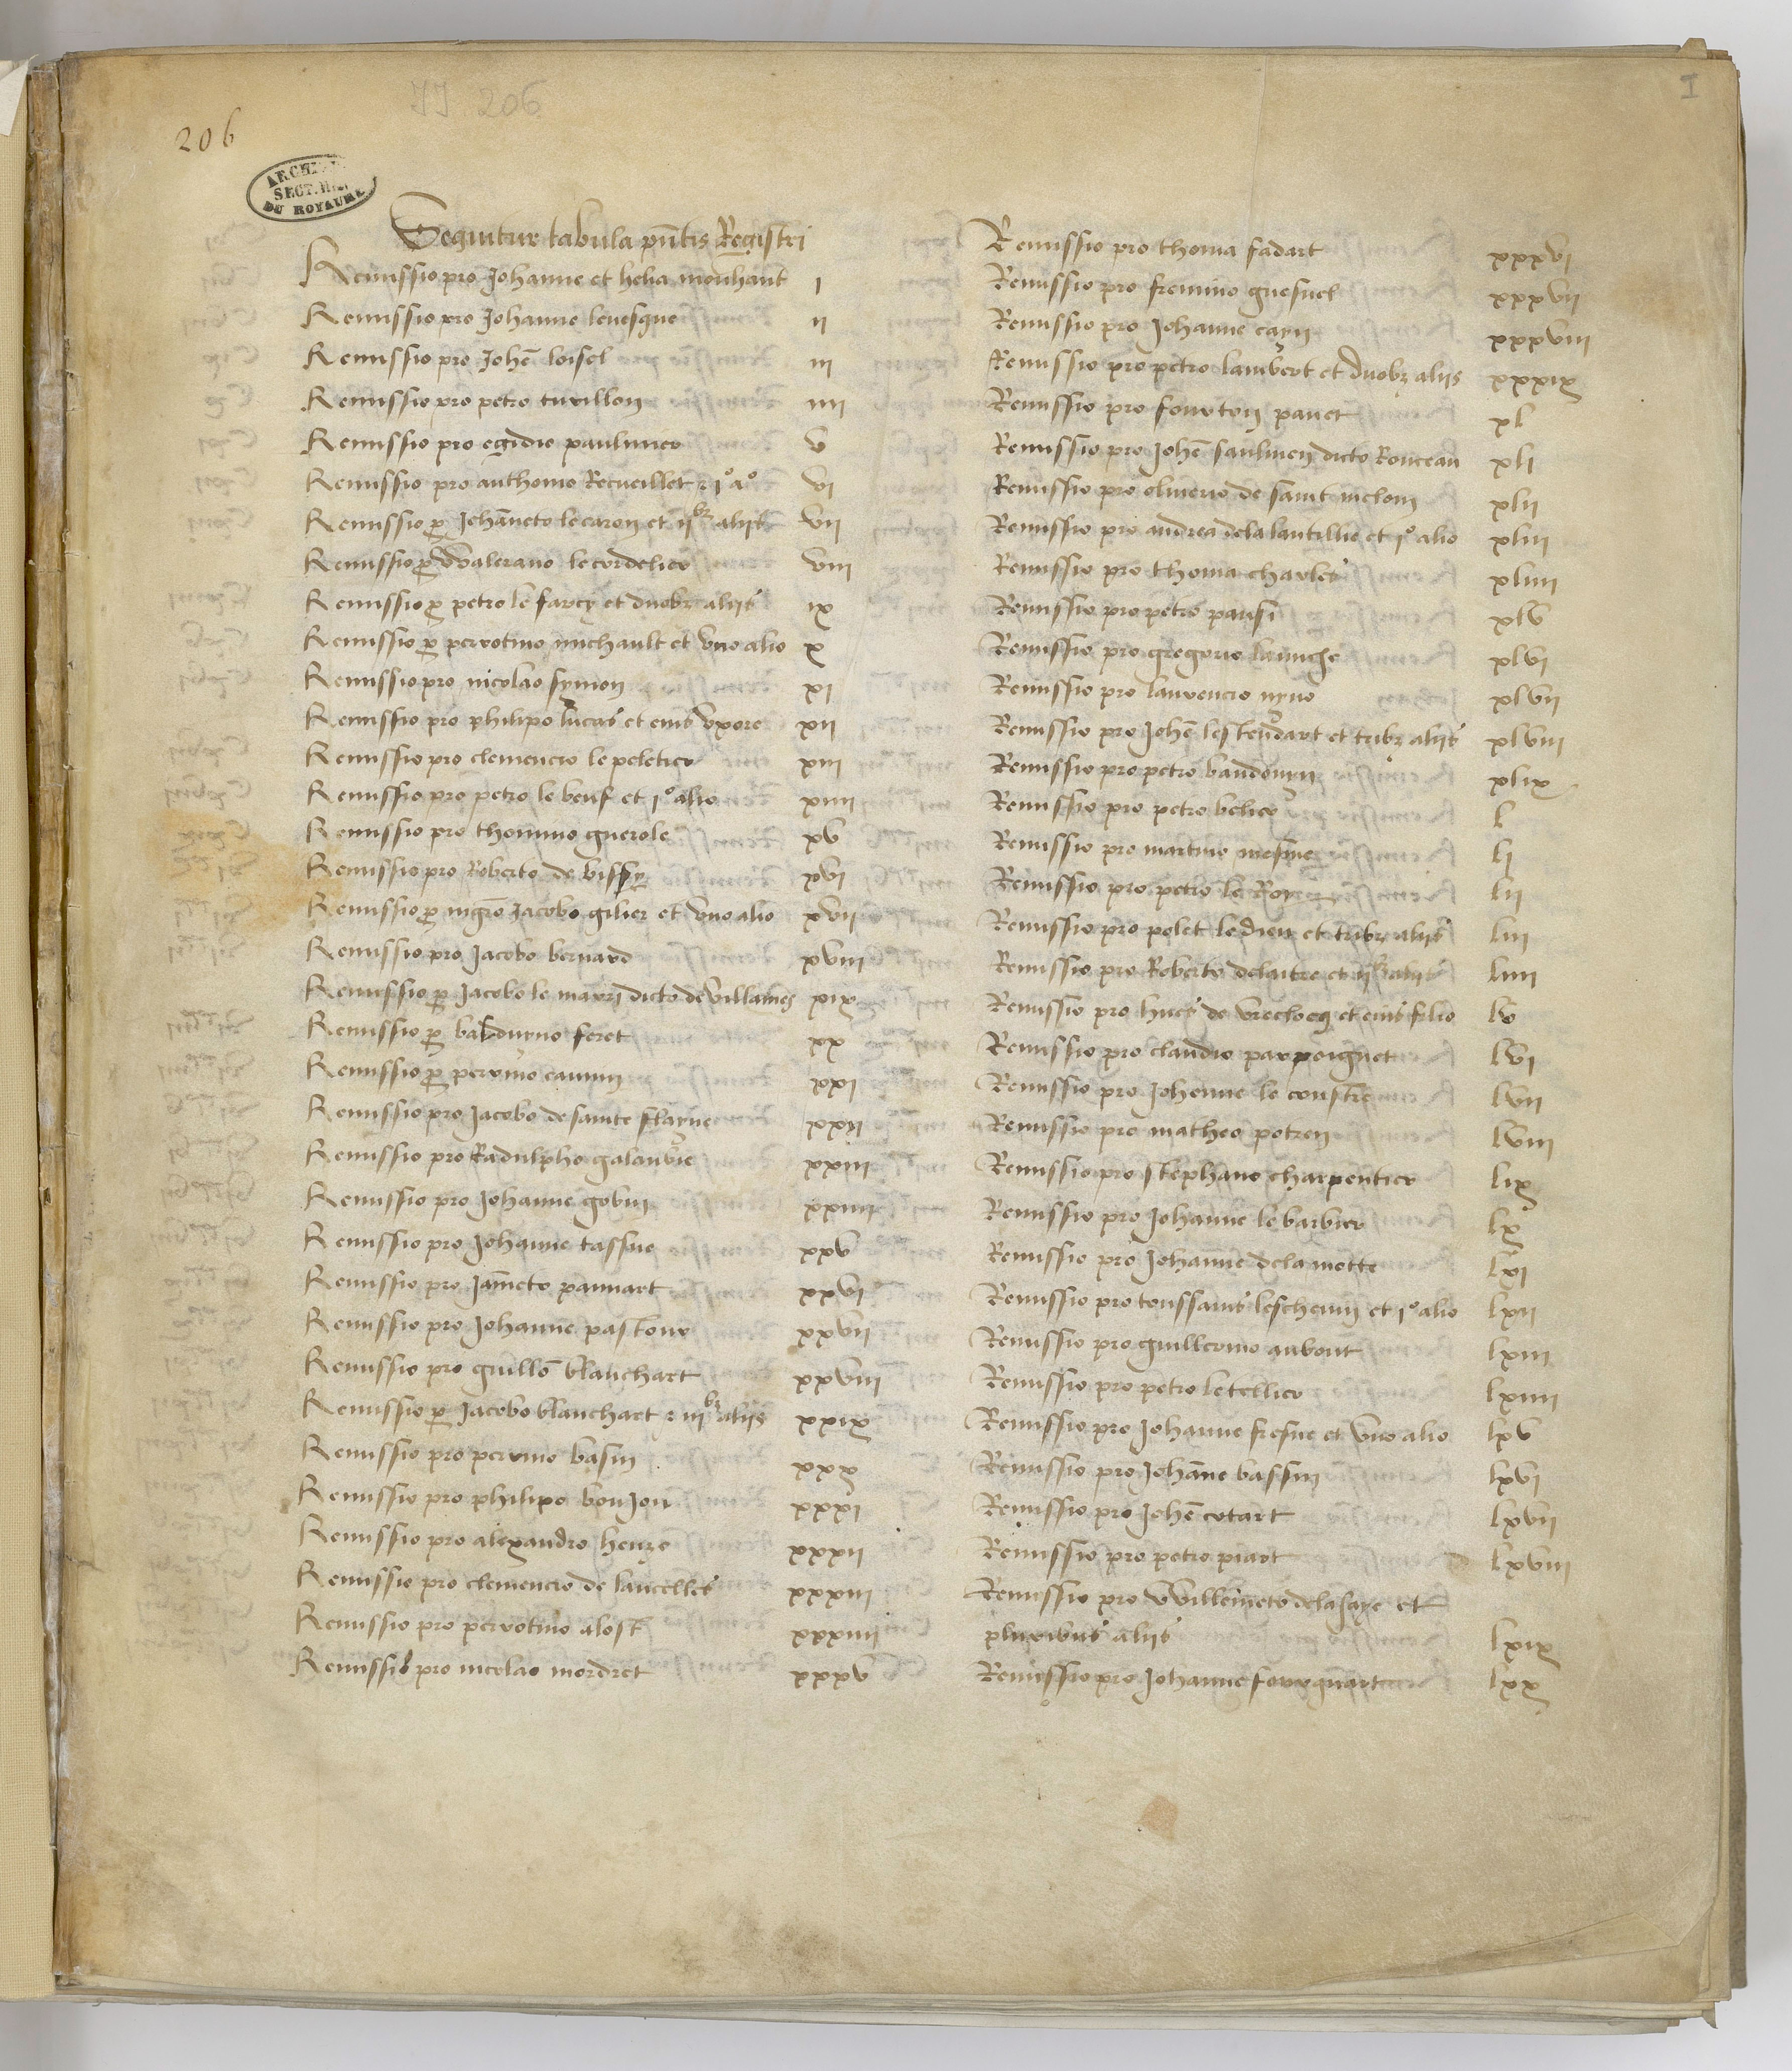 JJ. 206
I
206
ARCHI
SECT. H
DU ROYAUME
Sequitur tabula pñtis Registri
Remissio pro Johanne et helia mouhant I
Remissio pro Johanne levesque II
Remissio pro Johẽ loisel III
Remissio pro petro turillon IIII
Remissio pro egidio paulmier V
Remissio pro anthonio Recueillet z Iº aº VI
Remissio pro Johãneto lecaron et IIbz aliis VII
Remissio pro Walerano le cordelier VIII
Remissio pro petro le farcy et duobz aliis IX
Remissio pro perrotino michault et uno alio X
Remissio pro nicolao symon XI
Remissio pro philipo lucas et eius uxore XII
Remissio pro clemencio le peletier XIII
Remissio pro petro le beuf et Iº alio XIIII
Remissio pro thomino guerole XV
Remissio pro Roberto de bissy XVI
Remissio pro mgrõ Jacobo gilier et uno alio XVII
Remissio pro Jacobo bernard XVIII
Remissio pro Jacobo le maryé dicto de villaines XIX
Remissio pro balduyno feret XX
Remissio pro perrino camin XXI
Remissio pro Jacobo de sainte flayve XXII
Remissio pro Radulpho galaubie XXIII
Remissio pro Johanne gobin XXIIII
Remissio pro Johanne tassine XXV
Remissio pro Jam̃eto pannart XXVI
Remissio pro Johanne pastour XXVII
Remissio pro guillõ blanchart XXVIII
Remissio pro Jacobo blanchart z IIIbz aliis XXIX
Remissio pro perrino basin XXX
Remissio pro philipo bonjon XXXI
Remissio pro alexandro heuze XXXII
Remissio pro clemencio de lancelles XXXIII
Remissio pro perrotino alost XXXIIII
Remissio pro nicolao mordret XXXV
Remissio pro thoma fadart XXXVI
Remissio pro fremino guesnel XXXVII
Remissio pro Johanne cayn XXXVIII
Remissio pro petro lambert et duobz aliis XXXIX
Remissio pro fourton panet XL
Remissio pro Johẽ saulmen dicto Ronceau XLI
Remissio pro oliverio de saint melom XLII
Remissio pro andrea dela lantillie et Iº alio XLIII
Remissio pro thoma charles XLIIII
Remissio pro petro parisi XLV
Remissio pro gregorio launche XLVI
Remissio pro laurencio nyno XLVII
Remissio pro Johẽ lestendart et tribz aliis XLVIII
Remissio pro petro baudouyn XLIX
Remissio pro petro belier L
Remissio pro martino mesmes LI
Remissio pro petro le Roy LII
Remissio pro polet ledieu et tribz aliis LIII
Remissio pro Roberto delaitre et IIbz aliis LIIII
Remissio pro hues de vrechocq et eius filio LV
Remissio pro claudio parpeignet LVI
Remissio pro Johanne le coustre LVII
Remissio pro matheo potren LVIII
Remissio pro stephano charpentier LIX
Remissio pro Johanne le barbier LX
Remissio pro Johanne delamotte LXI
Remissio pro toussains leschemin et Iº alio LXII
Remissio pro guillermo aubout LXIII
Remissio pro petro letellier LXIIII
Remissio pro Johanne fresne et uno alio LXV
Remissio pro Johãne bassin LXVI
Remissio pro Johẽ cotart LXVII
Remissio pro petro piart LXVIII
Remissio pro Willemeto delasaye et
pluribus aliis LXIX
Remissio pro Johanne fourquart LXX